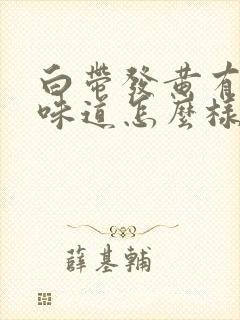 白帶發黄有
味道怎麼樣
薛基輔